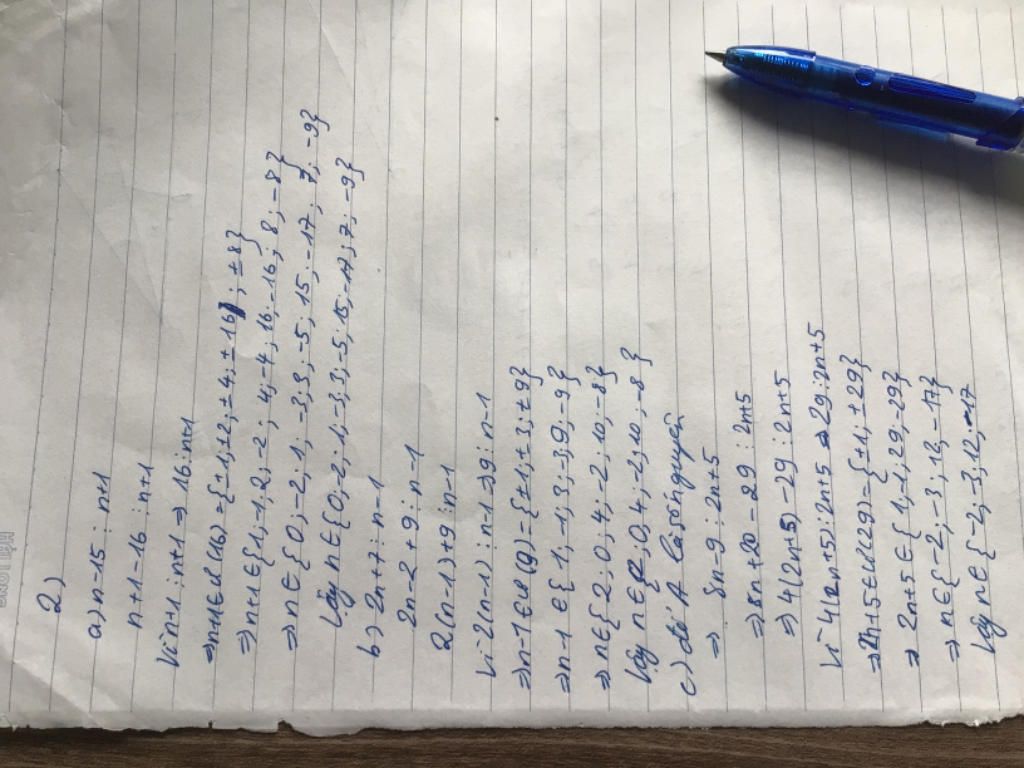 HẢI LONG
2)
a) n-15 ⋮ n+1
n+1-16 ⋮ n+1
Vì n+1 ⋮ n+1 ⇒ 16 ⋮ n+1
⇒ n+1 ∈ Ư(16) = {±1; ±2; ±4; ±16; ±8}
⇒ n+1 ∈ {1; -1; 2; -2; 4; -4; 16; -16; 8; -8}
⇒ n ∈ {0; -2; 1; -3; 3; -5; 15; -17; 7; -9}
Vậy n ∈ {0; -2; 1; -3; 3; -5; 15; -17; 7; -9}
b) 2n+7 ⋮ n-1
2n-2+9 ⋮ n-1
2(n-1)+9 ⋮ n-1
Vì 2(n-1) ⋮ n-1 ⇒ 9 ⋮ n-1
⇒ n-1 ∈ Ư(9) = {±1; ±3; ±9}
⇒ n-1 ∈ {1; -1; 3; -3; 9; -9}
⇒ n ∈ {2; 0; 4; -2; 10; -8}
Vậy n ∈ {2; 0; 4; -2; 10; -8}
c) để A là số nguyên
⇒ 8n-9 ⋮ 2n+5
⇒ 8n+20-29 ⋮ 2n+5
⇒ 4(2n+5)-29 ⋮ 2n+5
Vì 4(2n+5) ⋮ 2n+5 ⇒ 29 ⋮ 2n+5
⇒ 2n+5 ∈ Ư(29) = {±1; ±29}
⇒ 2n+5 ∈ {1; -1; 29; -29}
⇒ n ∈ {-2; -3; 12; -17}
Vậy n ∈ {-2; -3; 12; -17